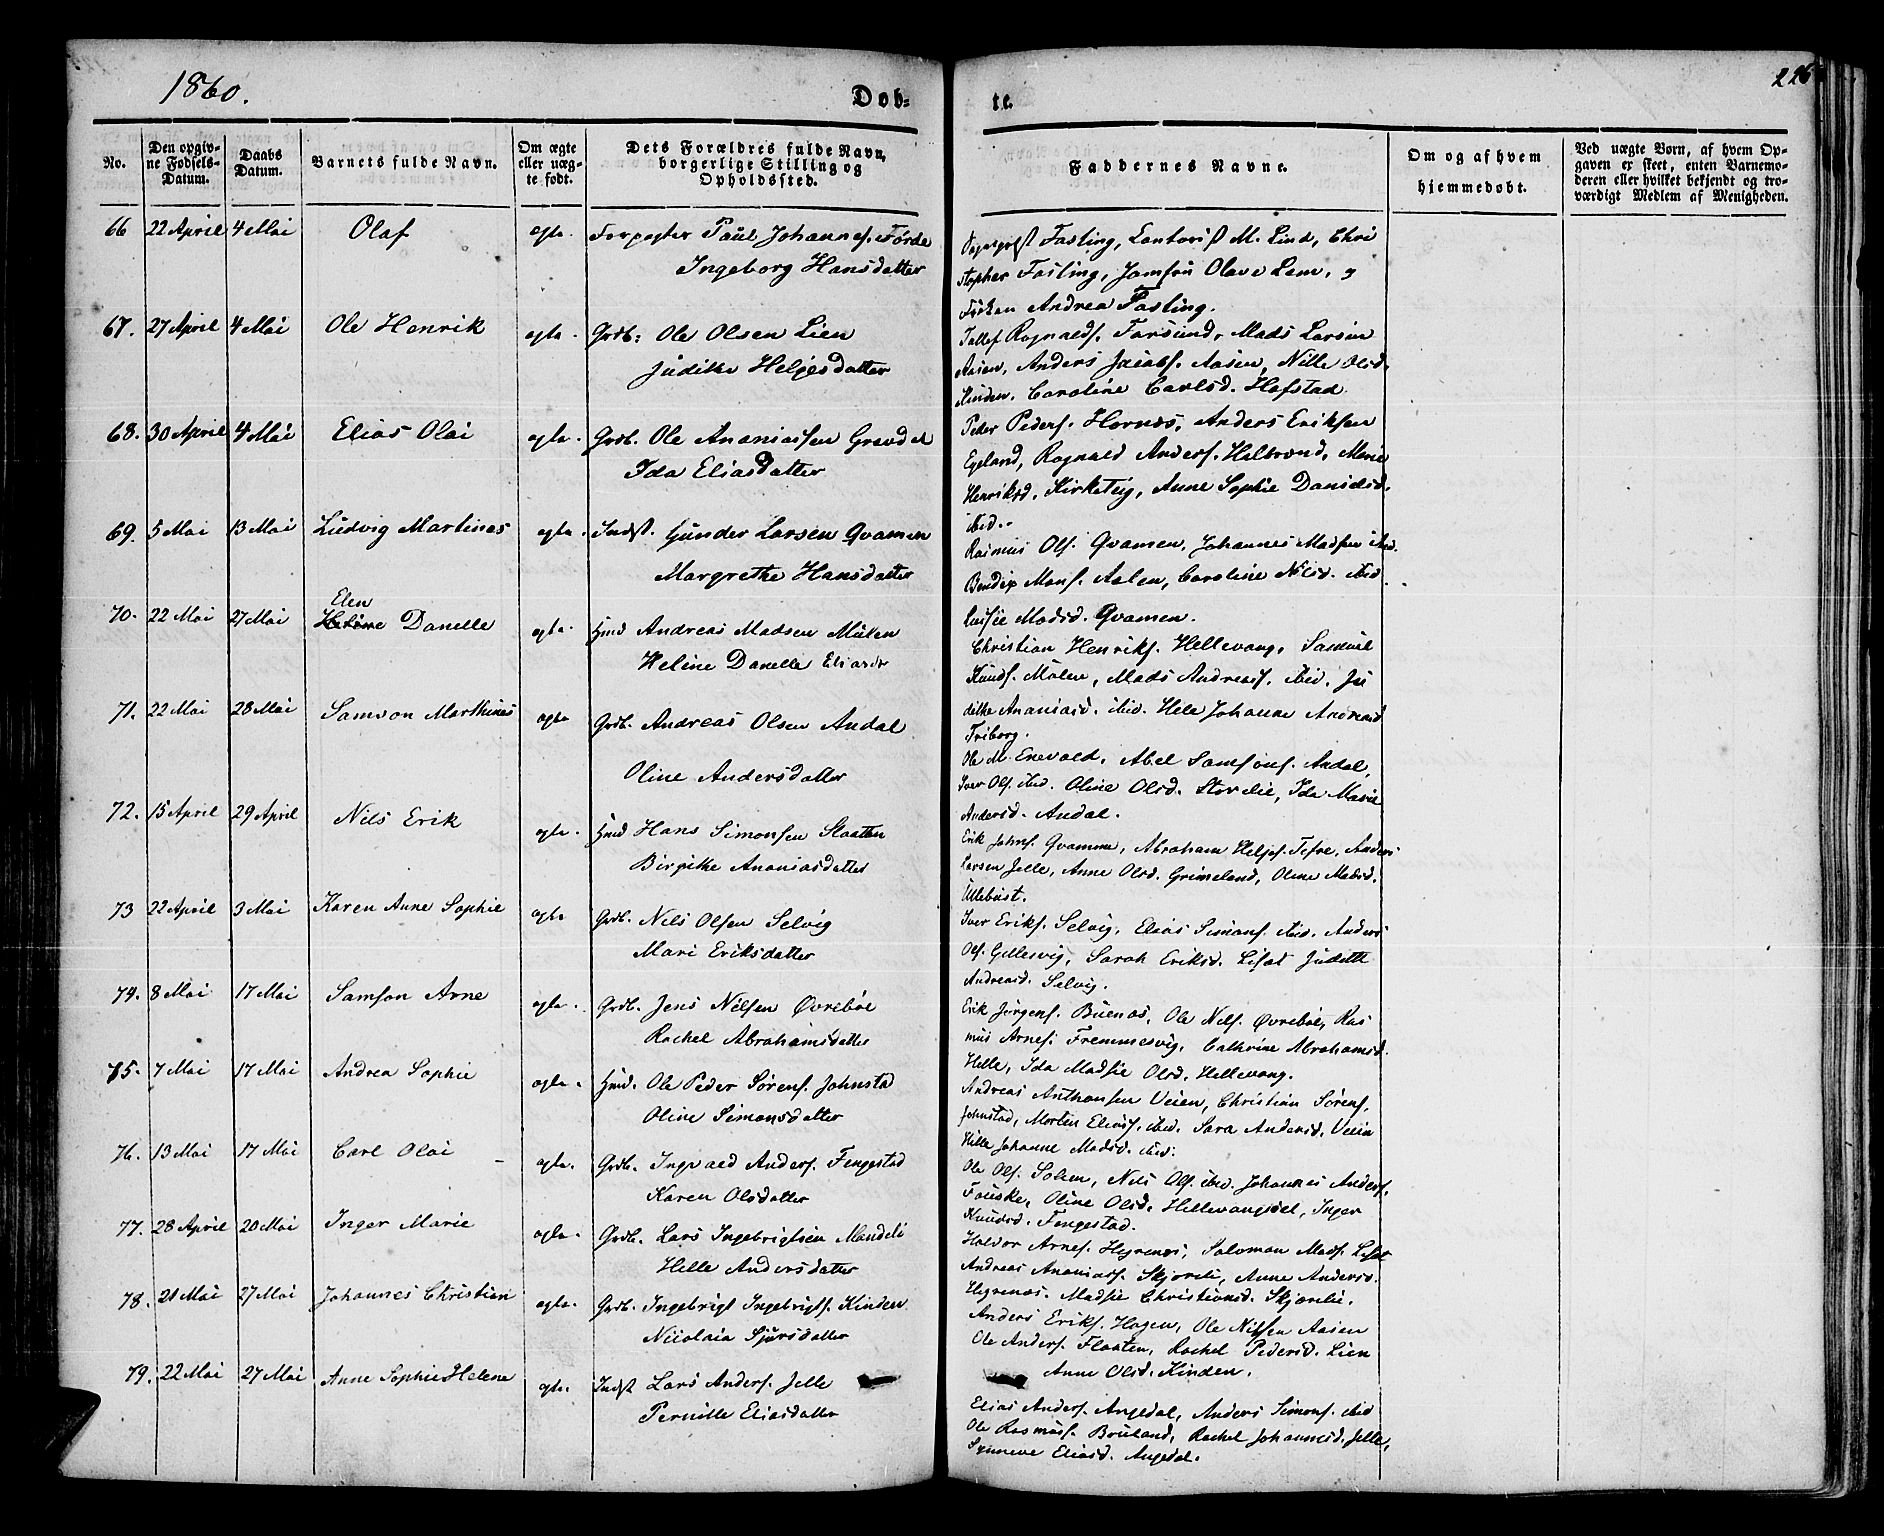 1860.
Døb-
te.
No.
Den opgivne Fødsels-Datum.
Daabs Datum.
Barnets fulde Navn.
Om ægte eller uægte født.
Dets Forældres fulde Navn, borgerlige Stilling og Opholdssted.
Faddernes Navne.
Om og af hvem hjemmedøbt.
Ved uægte Børn, af hvem Opgaven er skeet, enten Barnemoderen eller hvilket bekjendt og troværdigt Medlem af Menigheden.
66 22 April 4 Mai Olaf ægte. Forpagter Paul Johannes. Førde
Ingeborg Hansdatter
Fasting, Cantorist M. Lind, Chri
stopher Fasting, Jomfru Olave Lem, og
Frøken Andrea Fasting.
67. 27 April 4 Mai Ole Henrik ægte. Grdb: Ole Olsen Lien
Judithe Heljesdatter
Tollef Rognalds. Farsund, Mads Larsen
Aasen, Anders Jacobs. Aasen, Nille Olsd.
Kinden, Caroline Carlsd. Hofstad
68. 30 April 4 Mai Elias Olai ægte. Grdb. Ole Ananiassen
Ida Eliasdatter
Peder Peders. Hornæs, Anders Eriksen
Egeland, Rognald Anders. Halbrend, Marie
Henriksd. Kirketeig, Anne Sophie Danielsd.
ibid.
69. 5 Mai 13 Mai Ludvig Martinus ægte. Indst. Gunder Larsen Qvamen
Margrethe Hansdatter
Rasmus Ols. Qvamen, Johannes Madsen ibid.
Bendix Mons. Aalen, Caroline Nilsd. ibid.
Madsd. Qvamen.
70. 22 Mai 27 Mai Elen Danelle ægte. Hmd Andreas Madsen Mulen
Helene Danelle Eliasdr
Christian Henriks. Hellevang, Samuel
Knuds. Mulen, Mads Andreas. ibid. Ju
dithe Ananiasd. ibid. Hele Johanne Andreasd
Friborg.
71. 22 Mai 28 Mai Samson Marthinus ægte Grdb. Andreas Olsen Andal
Oline Andersdatter
Ole M. Enevald, Abel Samsons. Andal,
Iver Ols. ibid. Oline Olsd. Storelie, Ida Marie
Andersd. Andal.
72. 15 April 29 April Nils Erik ægte. Hmd Hans Simonsen Slaatten
Birgithe Ananiasdatter
Erik Johns. Qvamme, Abraham Heljes. Tefre, Anders
Larsen Jelle, Anne Olsd. Grimeland, Oline Madsd.
Ullebust.
73 22 April 3 Mai Karen Anne Sophie ægte Grdb. Nils Olsen Selvig
Mari Eriksdatter
Iver Eriks. Selvig, Elias Simons. ibid. Anders
Ols. Gillesvig, Sarah Eriksd. Lisæt Judith
Andreasd. Selvig.
74. 8 Mai 17 Mai Samson Arne ægte. Grdb. Jens Nilsen Øvrebøe
Rachel Abrahamsdatter
Erik Jørgens. Buenæs, Ole Nils. Øvrebøe, Ras
mus Arnes. Fremmesvig, Cathrine Abrahamsd.
Helle, Ida Madsie Olsd. Hellevang.
75. 7 Mai 17 Mai Andrea Sophie ægte. Hmd. Ole Peder Sørens. Johnstad
Oline Simonsdatter
Andreas Anthonsen Veien, Christian Sørens.
Johnstad, Morten Elias. ibid. Sara Andersd. Veien
Hille Johanne Madsd. ibid.
76. 13 Mai 17 Mai Carl Olai ægte. Grdb. Ingvald Anders. Fengestad
Karen Olsdatter
Ole Ols. Solem, Nils Ols. ibid. Johannes Anders.
Fauske, Oline Olsd. Hellevangdal, Inger
Knudsd. Fengestad.
77. 28 April 20 Mai Inger Marie ægte. Grdb. Lars Ingebrigtsen Mandeli
Hille Andersdatter
Haldor Arnes. Heyrenæs, Salomon Mads. Lisæt
Andreas Ananias. Skjærlie, Anne Andersd.
Heyrenæs. Madsie Christiansd. Skjærlie.
78. 21 Mai 27 Mai Johannes Christian ægte. Grdb. Ingebrigt Ingebrigts. Kinden
Nicolaia Sjursdatter
Anders Eriks. Hagen, Ole Nilsen Aasen
Ole Anders. Flaaten, Rachel Pedersd. Lien
Anne Olsd. Kinden.
79. 22 Mai 27 Mai Anne Sophie Helene ægte. Indst Lars Anders. Jelle
Pernille Eliasdatter
Elias Anders. Angedal, Anders Simons. ibid
Ole Rasmus. Bruland, Rachel Johannesd. Jelle,
Synneve Eliasd. Angedal.